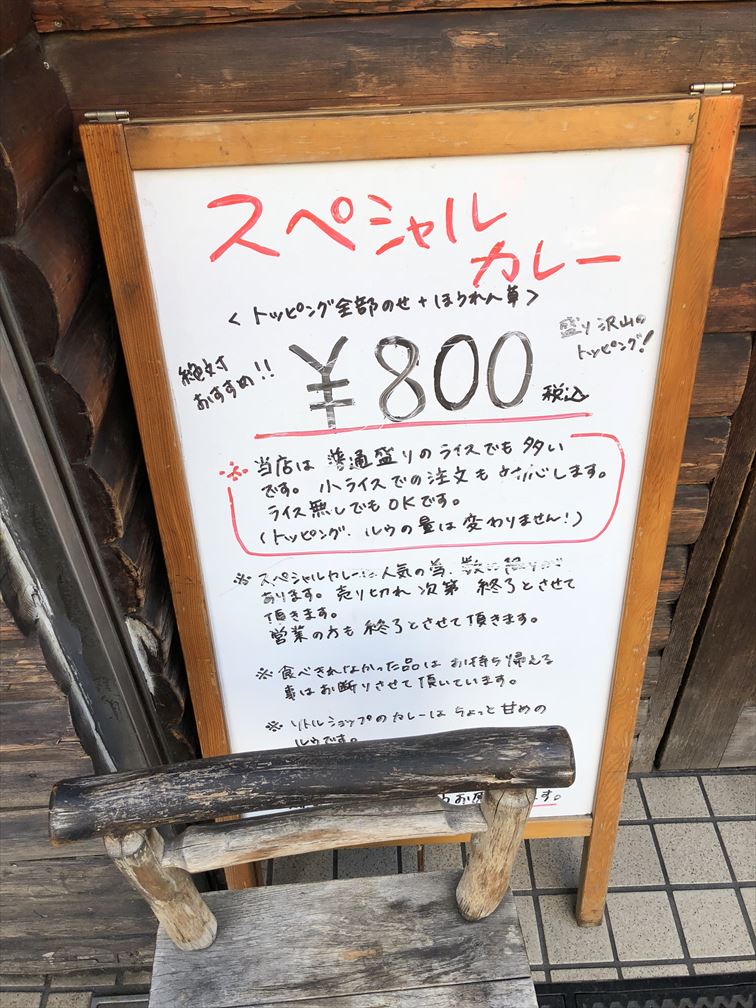 スペシャル
カレー
<トッピング全部のせ+ほうれん草>
絶対
おすすめ!!
¥800 税込
盛り沢山の
トッピング!
※ 当店は 普通盛りのライスでも 多い
です。小ライスでの注文も します。
ライス無しでもOKです。
(トッピング、ルウの量は変わりません!)
※ スペシャルカレーは人気の為、数に限りが
あります。売り切れ次第 終了とさせて
頂きます。
営業の方も 終了とさせて頂きます。
※ 食べきれなかった品は お持ち帰える
事はお断りさせて頂いています。
※ リトルショップのカレーは ちょっと甘めの
ルウです。
す。